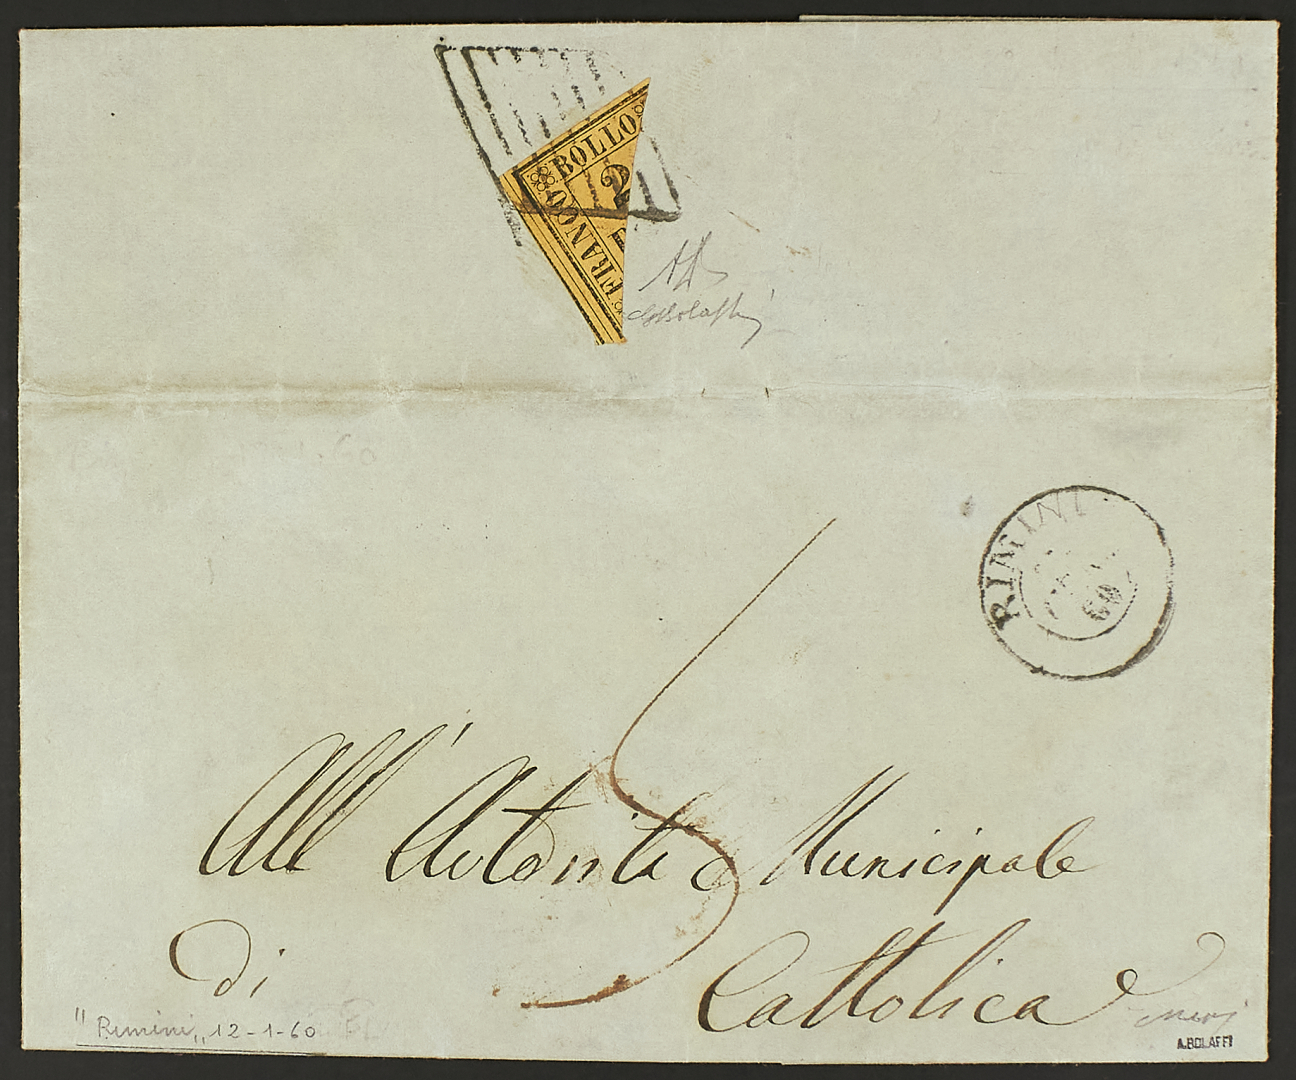 FRANCO BOLLO
2
RIMINI
60
All' Autorità Municipale
di
Cattolica
"Rimini„ 12-1-60
A.BOLAFFI